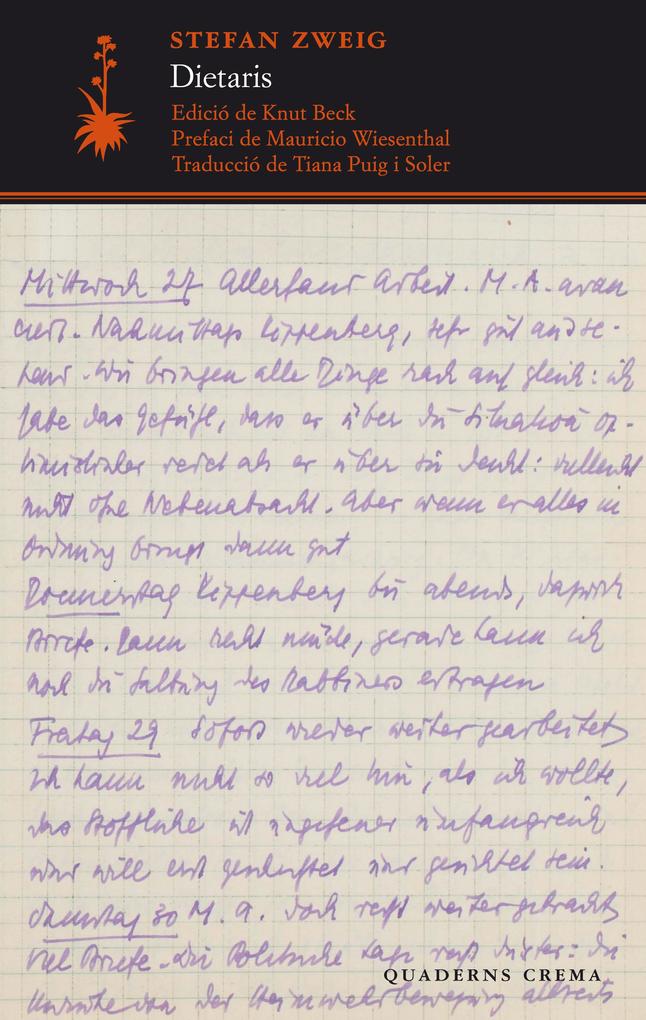 STEFAN ZWEIG
Dietaris
Edició de Knut Beck
Prefaci de Mauricio Wiesenthal
Traducció de Tiana Puig i Soler
Mittwoch 27 Allerhand Arbeit. M. A. avan
ciert. Nachmittags Kippenberg, sehr gut
Wir bringen alle Dinge rasch auf gleich: ich
habe das Gefühl, dass er über die Situation op-
timistischer redet als er über sie denkt: vielleicht
nicht ohne Nebenabsicht. Aber wenn er alles in
Ordnung bringt dann gut
Donnerstag Kippenberg bis abends, dazwisch
Briefe. Dann recht müde, gerade kann ich
noch die des Rabbiners ertragen
Freitag 29 Sofort wieder weiter gearbeitet
Ich kann nicht so viel tun, als ich wollte,
das Stoffliche ist ungeheuer umfangreich
und will erst und gesichtet sein.
Samstag 30 M. A. doch recht weiter gebracht
viel Briefe. die Politische Lage recht düster: die
der Heimwehrbewegung
QUADERNS CREMA